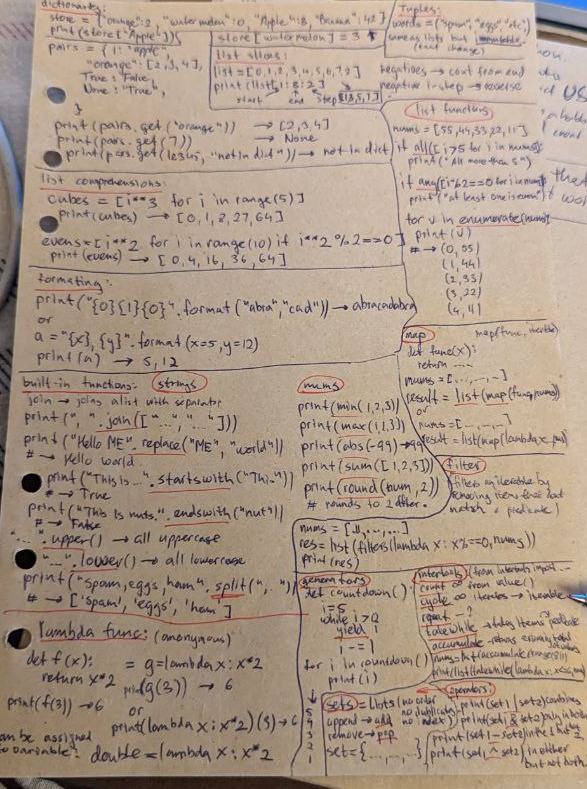 dictionaries:
store = {"orange":2, "watermelon":0, "Apple":8, "Banana":42}
print(store["Apple"])
store[watermelon] = 3
pairs = { 1: "apple",
"orange": [2,3,4],
True: False,
None: "True",
}
print(pairs.get("orange")) → [2,3,4]
print(pairs.get(7)) → None
print(pairs.get(12345, "not in dict")) → not in dict
Tuples:
words = ("spam", "eggs", "etc")
same as lists but immutable
(cant change)
list slices:
list = [0,1,2,3,4,5,6,7,8]
print(list[1:8:2])
start end step [1,3,5,7]
negatives → count from end
negative in step → reverse
list functions
nums = [55,44,33,22,11]
if all([i>5 for i in nums])
print("All more than 5")
if any([i%2==0 for i in nums])
print("at least one is even")
for v in enumerate(nums)
print(v)
# → (0,55)
(1,44)
(2,33)
(3,22)
(4,11)
list comprehensions:
cubes = [i**3 for i in range(5)]
print(cubes) → [0,1,8,27,64]
evens = [i**2 for i in range(10) if i**2 % 2==0]
print(evens) → [0,4,16,36,64]
formating:
print("{0}{1}{0}".format("abra","cad")) → abracadabra
or
a = "{x}, {y}".format(x=5, y=12)
print(a) → 5,12
map
map(func, iterable)
def func(x):
return ....
nums = [..., ..., ...]
result = list(map(func, nums))
or
nums = [..., ..., ...]
result = list(map(lambda x, nums
built-in functions: strings
join → joins a list with separator
print(", ".join(["...", "...", "..."]))
print("Hello ME".replace("ME", "world"))
# → Hello world
print("This is ...".startswith("Thi.."))
# → True
print("This is nuts.".endswith("nut"))
# → False
"...".upper() → all uppercase
"...".lower() → all lowercase
print("spam,eggs,ham".split(","))
# → ['spam', 'eggs', 'ham']
nums
print(min(1,2,3))
print(max(1,1,3))
print(abs(-99)) → 99
print(sum([1,2,3]))
print(round(num,2))
# rounds to 2 after.
filter
filters an iterable by
removing items that dont
match a predicate)
nums = [11, ..., ...]
res = list(filters(lambda x: x%==0, nums))
print(res)
generators
def countdown():
i=5
while i>0
yield i
i -= 1
for i in countdown()
print(i)
itertools (from itertools import ...
count ∞ from value()
cycle ∞ iterates → iterable
takewhile → takes items predicate
accumulate
nums = list(accumulate(range(8)))
print(list(takewhile(lambda x: x<=6, nums
lambda func: (anonymous)
def f(x): = g = lambda x: x*2
return x*2 print(g(3)) → 6
print(f(3)) → 6 or
print(lambda x: x*2)(3) → 6
can be assigned
to variable: double = lambda x: x*2
sets = lists (no order
no duplicates
no index)
append → add
remove → pop
set = {..., ..., ...}
operators:
print(set1 | set2) combines
print(set1 & set2) only in both
print(set1 - set2) in 1 but not 2
print(set1 ^ set2) in either
but not both